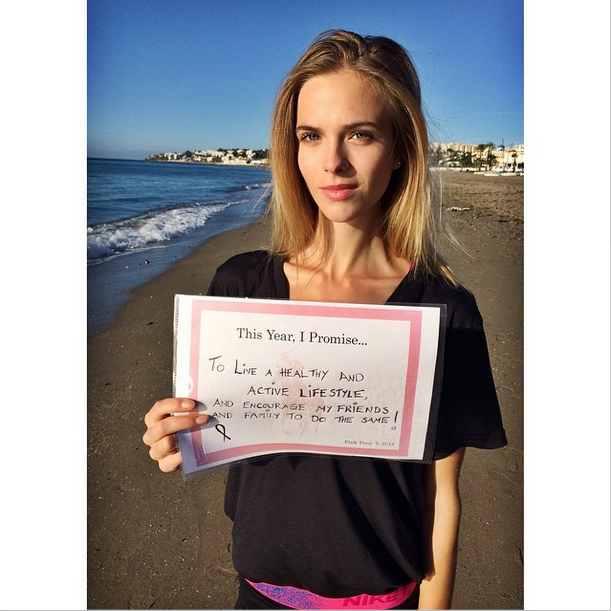 This Year, I Promise...
TO LIVE A HEALTHY AND
ACTIVE LIFESTYLE,
AND ENCOURAGE MY FRIENDS
AND FAMILY TO DO THE SAME!
Pink Pony 2014
NIKE